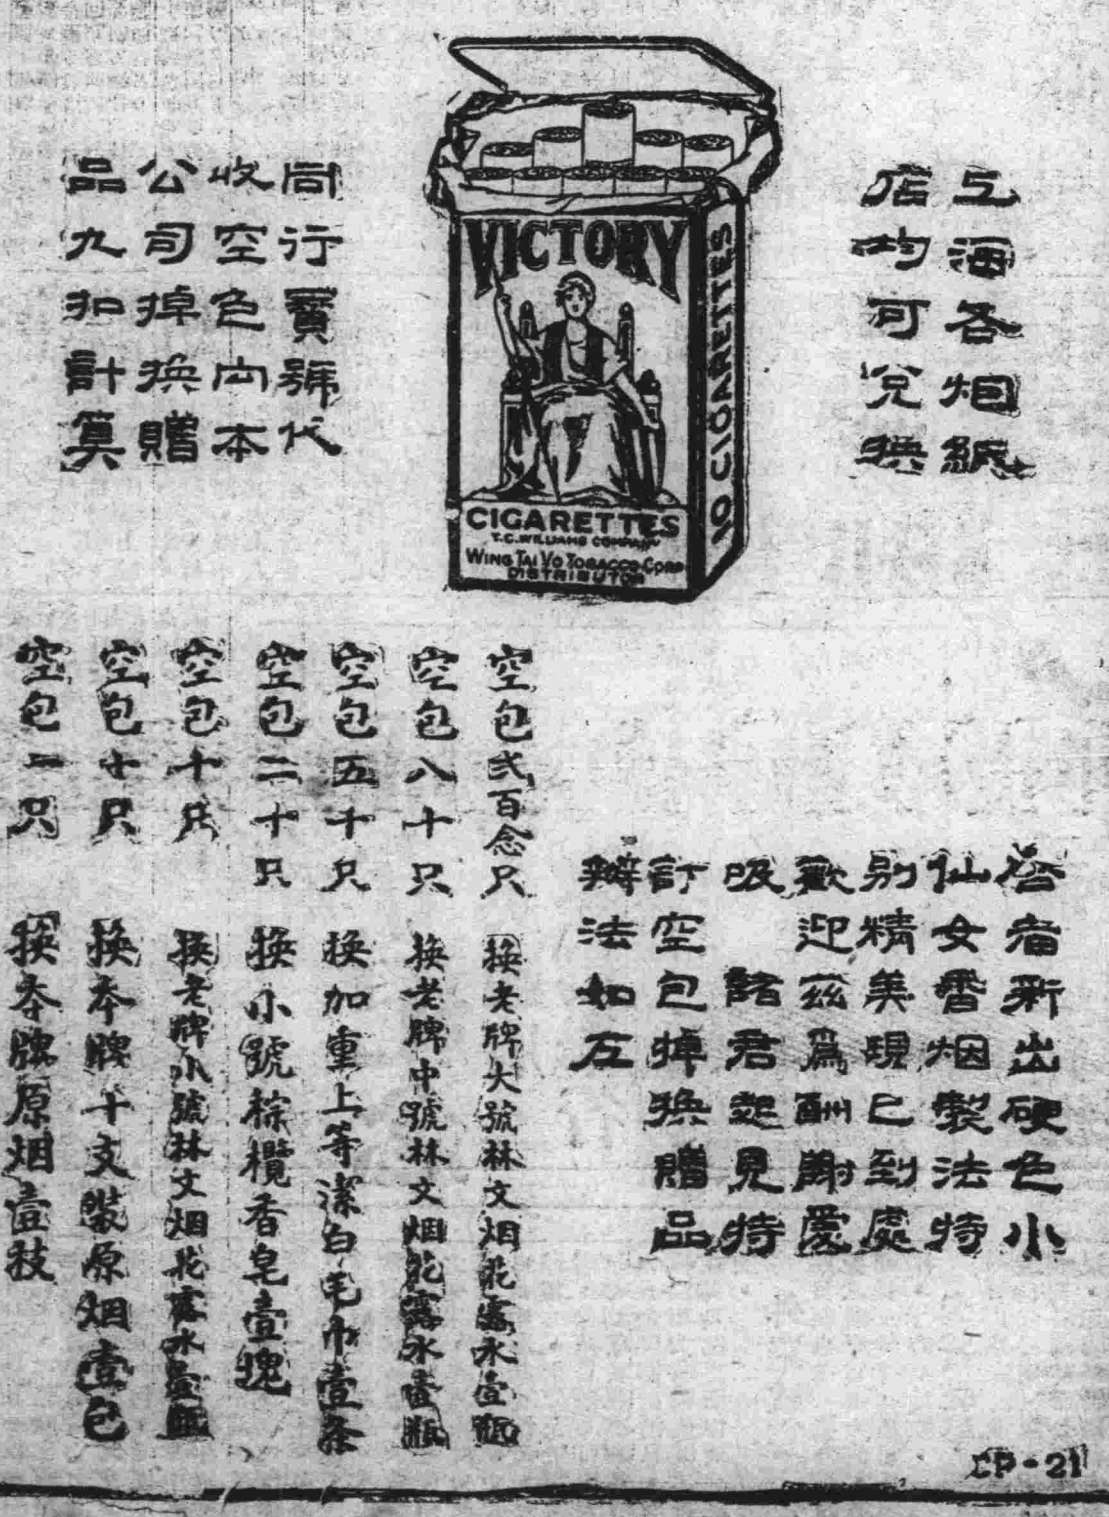 上海各烟紙
店均可兌換
VICTORY
CIGARETTES
T.C. WILLIAMS COMPANY
WING TAI VO TOBACCO CORP
DISTRIBUTOR
10 CIGARETTES
同行寶號代
收空包向本
公司掉換贈
品九扣計算
啓者新出硬包小
仙女香烟製法特
別精美現已到處
歡迎茲爲酬謝愛
吸 諸君起見特
訂空包掉換贈品
辦法如左
空包弍百念只 換老牌大號林文烟花露水壹瓶
空包八十只 換老牌中號林文烟花露水壹瓶
空包五十只 換加重上等潔白毛巾壹条
空包二十只 換小號棕欖香皂壹塊
空包十只 換老牌小號林文烟花露水壹瓶
空包十只 換本牌十支裝原烟壹包
空包一只 換本牌原烟壹枝
CP-21